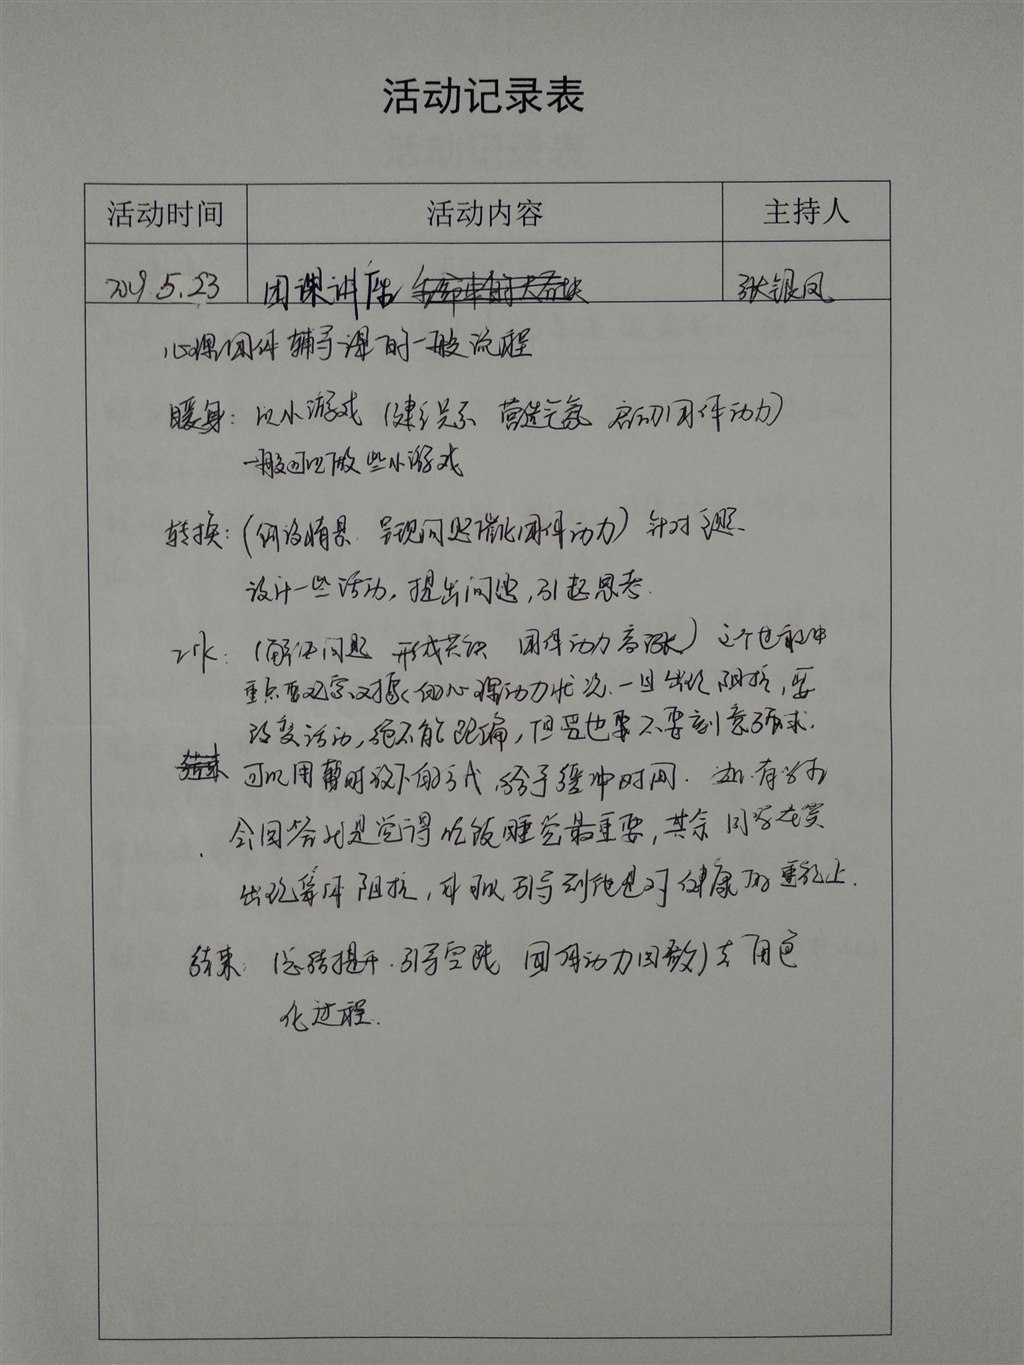 活动记录表
活动时间 活动内容 主持人
2019.5.23 团课讲座 张银凤
心理团体辅导课的一般流程
暖身：以小游戏（建关系 营造气氛 启动团体动力）
一般可以做些小游戏
转换：（创设情景 呈现问题 催化团体动力）针对主题
设计一些活动，提出问题，引起思考.
工作：（解决问题 形成共识 团体动力高涨）这个过程中
重点要观察对象的心理动力状况.一旦出现阻抗，要
改变活动，绝不能跑偏，但是也要不要刻意强求.
可以用暂时放下的方式，给予缓冲时间. 有学生
会回答我是觉得吃饭睡觉最重要，其余同学在笑
出现集体阻抗，可以引导到他是对健康的重视上.
结束：（总结提升.引导实践 团体动力回教）去
化过程.